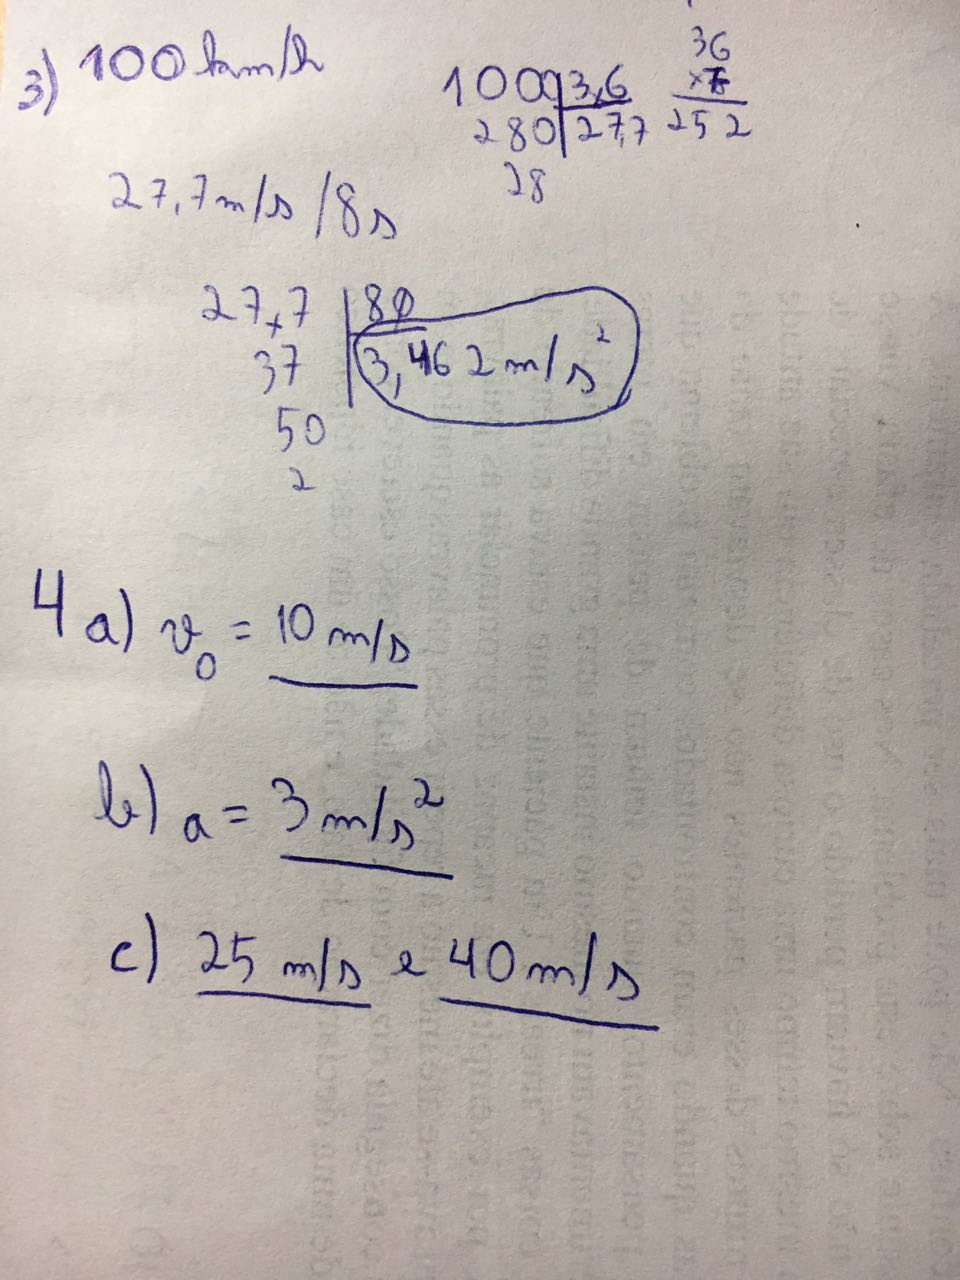 3) 100 km/h
1000 3,6
280 27,7
28
36
x7
252
27,7 m/s /8s
27,7 80
37 3,462 m/s²
50
2
4 a) v₀ = 10 m/s
b) a = 3 m/s²
c) 25 m/s e 40 m/s